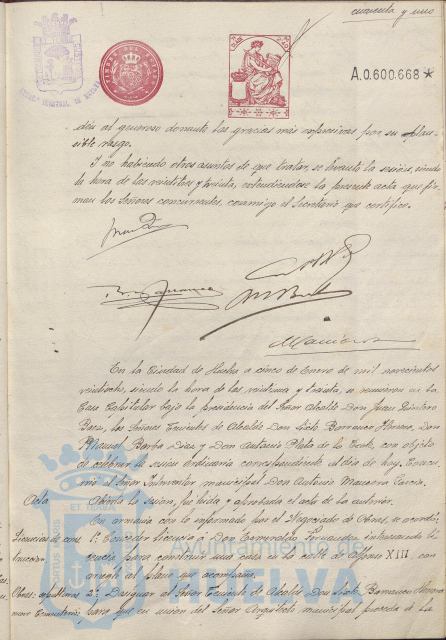 cuarenta y uno
A.0.600.668 *
déis al generoso donante las gracias más expresivas por su plau-
sible rasgo.
Y no habiendo otros asuntos de que tratar, se levanta la sesión, siendo
la hora de las veintidos y treinta, extendiéndose la presente acta que fir-
man los Señores concurrentes, conmigo el Secretario que certifico.
En la Ciudad de Huelva a cinco de Enero de mil novecientos
veintiocho, siendo la hora de las veintiuna y treinta, se reunieron en la
Casa Capitular bajo la presidencia del Señor Alcalde Don Juan Quintero
Baez, los Señores Tenientes de Alcalde Don José Barranco Don
Miguel Barba Diaz y Don Antonio Plata de la con objeto
de celebrar la sesión ordinaria correspondiente al día de hoy. Concu-
rrió el Señor Interventor municipal Don Antonio García.
Acta
Abierta la sesión, fué leída y aprobada el acta de la anterior.
En armonía con lo informado por el Negociado de Obras, se acordó:
Licencias de cons-
trucción
1º. Conceder licencia á Don Fernandez
para construir una casa en la calle de Alfonso XIII con
arreglo al plano que acompaña.
2º. Designar al Señor Teniente de Alcalde Don José Barranco
para que en unión del Señor Arquitecto municipal proceda a la
HUELVA